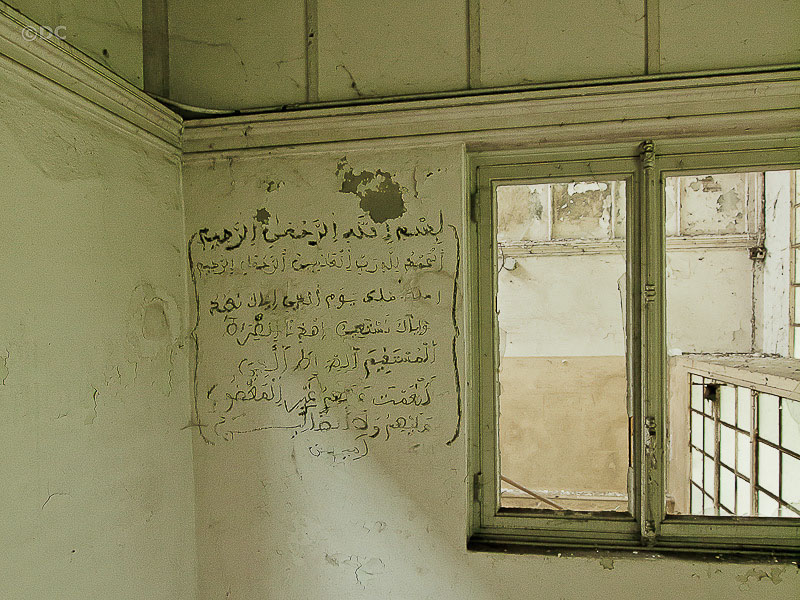 ©DC
بِسْمِ اللَّهِ الرَّحْمَٰنِ الرَّحِيمِ
الْحَمْدُ لِلَّهِ رَبِّ الْعَالَمِينَ الرَّحْمَٰنِ الرَّحِيمِ
يَوْمِ الدِّينِ إِيَّاكَ نَعْبُدُ
وَإِيَّاكَ نَسْتَعِينُ إِهْدِنَا الصِّرَاطَ
الْمُسْتَقِيمَ
أَنْعَمْتَ عَلَيْهِمْ غَيْرِ الْمَغْضُو
عَلَيْهِمْ وَلَا الضَّالِّينَ
آمين